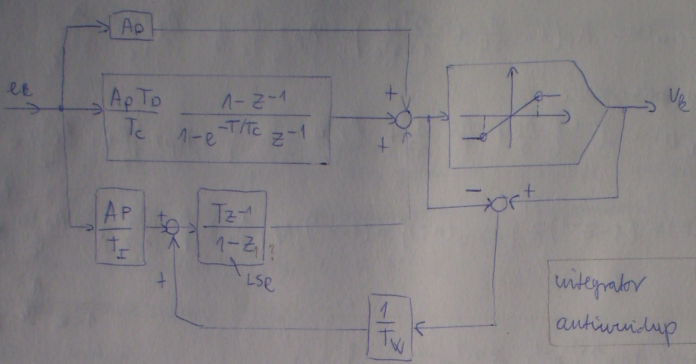 Ap
ek
Ap TD
Tc
1-z⁻¹
1-e^-T/Tc z⁻¹
+
+
Vk
- +
AP
TI
+
Tz⁻¹
1-z₁ ?
LSR
+
1
Tw
integrator
antiwindup